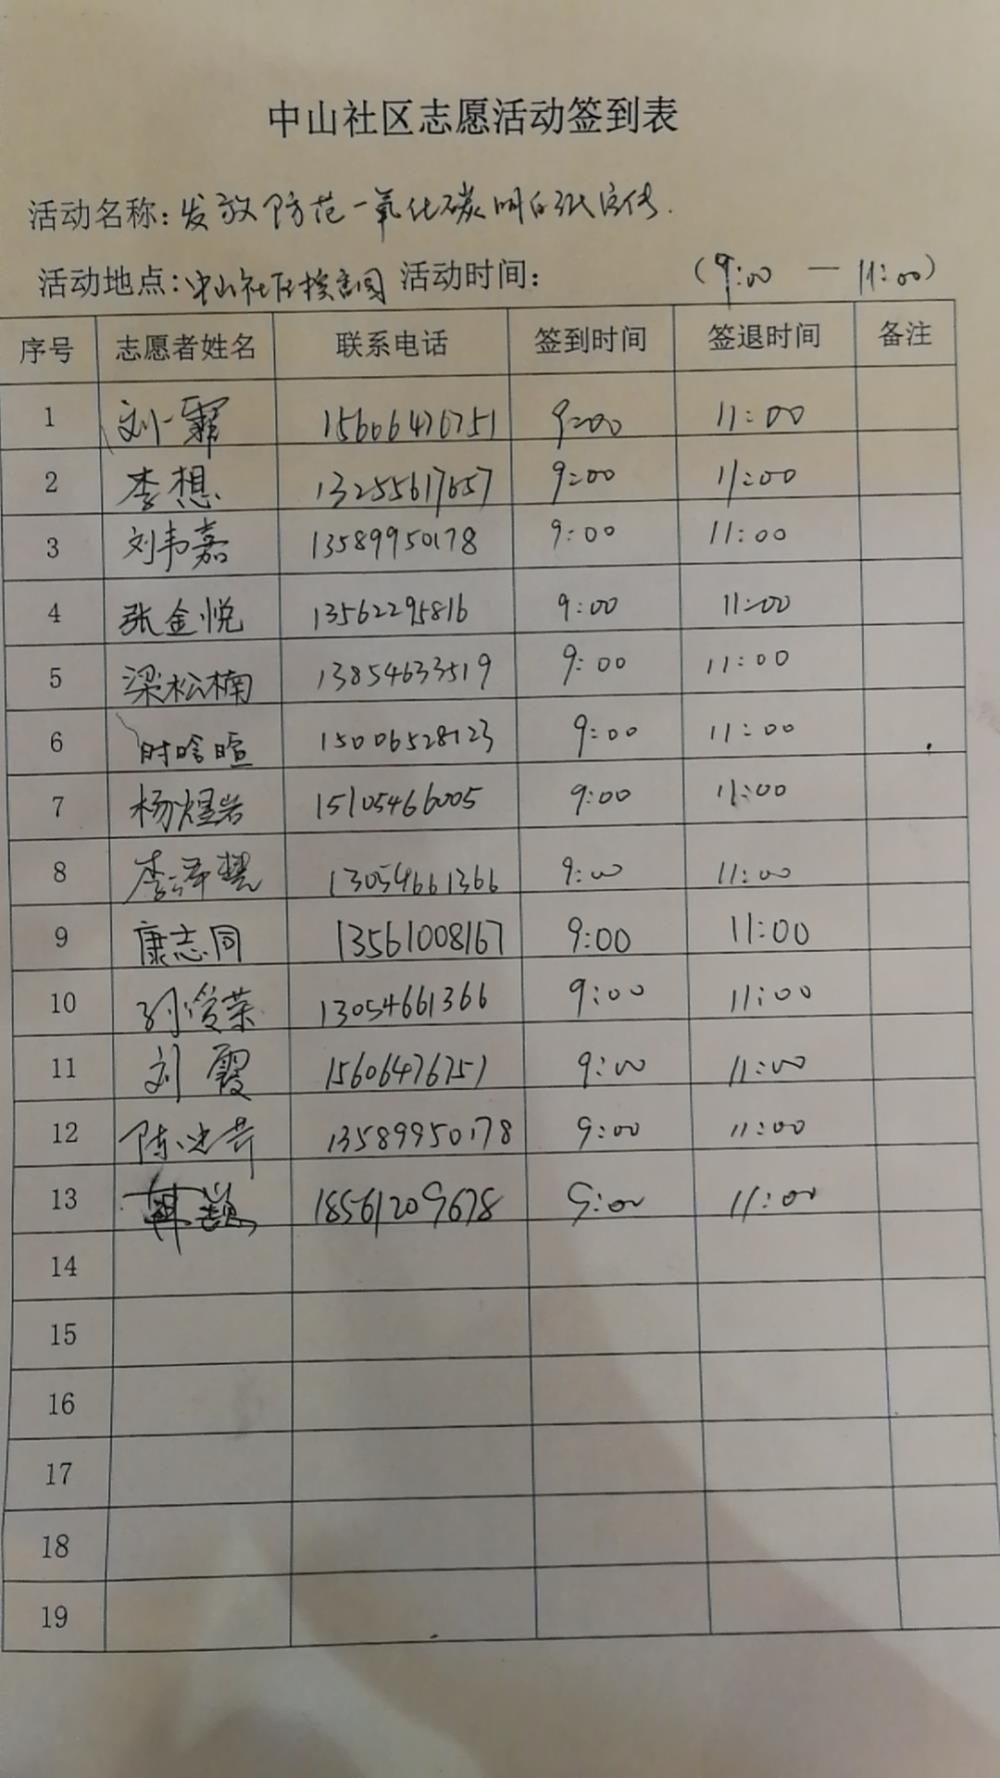 中山社区志愿活动签到表
活动名称：发放防范一氧化碳明白纸宣传.
活动地点：中山社区 活动时间： （9:00 — 11:00）
序号 志愿者姓名 联系电话 签到时间 签退时间 备注
1 刘一霏 15606476751 9:00 11:00
2 李想 13255617657 9:00 11:00
3 刘韦嘉 13589950178 9:00 11:00
4 张金悦 13562295816 9:00 11:00
5 梁松楠 13854633519 9:00 11:00
6 时晗暄 15006528123 9:00 11:00
7 杨煜岩 15105466005 9:00 11:00
8 李泽 13054661366 9:00 11:00
9 康志同 13561008167 9:00 11:00
10 孙俊荣 13054661366 9:00 11:00
11 刘霞 15606476751 9:00 11:00
12 陈 13589950178 9:00 11:00
13 韩 18561209678 9:00 11:00
14
15
16
17
18
19